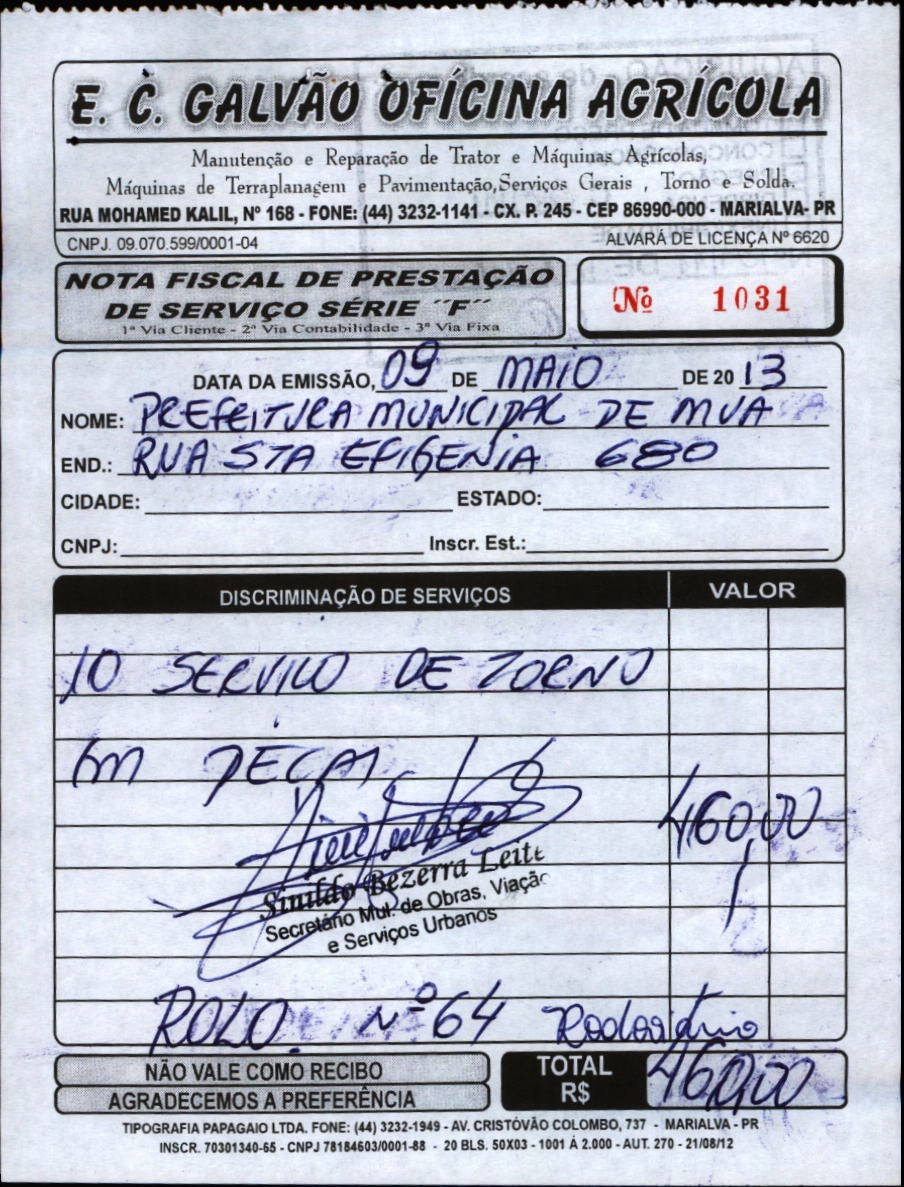 E. C. GALVÃO OFÍCINA AGRÍCOLA
Manutenção e Reparação de Trator e Máquinas Agrícolas,
Máquinas de Terraplanagem e Pavimentação,Serviços Gerais , Torno e Solda.
RUA MOHAMED KALIL, Nº 168 - FONE: (44) 3232-1141 - CX. P. 245 - CEP 86990-000 - MARIALVA- PR
CNPJ. 09.070.599/0001-04 ALVARÁ DE LICENÇA Nº 6620
NOTA FISCAL DE PRESTAÇÃO
DE SERVIÇO SÉRIE ´´F´´
1ª Via Cliente - 2ª Via Contabilidade - 3ª Via Fixa
Nº 1031
DATA DA EMISSÃO, 09 DE MAIO DE 20 13
NOME: PREFEITURA MUNICIPAL DE MVA
END.: RUA STA EFIGENIA 680
CIDADE: ESTADO:
CNPJ: Inscr. Est.:
DISCRIMINAÇÃO DE SERVIÇOS VALOR
10 SERVICO DE TORNO
Em PEÇAS
460,00
Sinildo Bezerra Leite
Secretário Mul. de Obras, Viação
e Serviços Urbanos
ROLO Nº 64 Rodoviário
NÃO VALE COMO RECIBO
AGRADECEMOS A PREFERÊNCIA
TOTAL
R$ 460,00
TIPOGRAFIA PAPAGAIO LTDA. FONE: (44) 3232-1949 - AV. CRISTÓVÃO COLOMBO, 737 - MARIALVA - PR
INSCR. 70301340-65 - CNPJ 78184603/0001-88 - 20 BLS. 50X03 - 1001 À 2.000 - AUT. 270 - 21/08/12